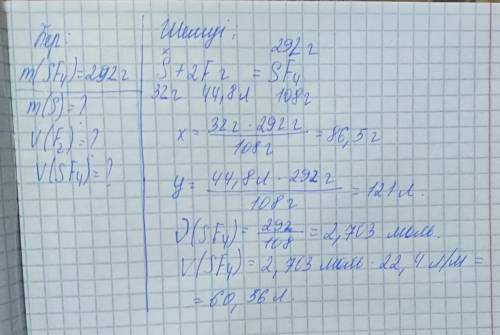 Бер:
m(SF4)=292г
m(S)=?
V(F2)=?
V(SF4)=?
Шешуі:
x 292г
S+2F2 = SF4
32г 44,8л 108г
x = 32г · 292г / 108г = 86,5г
y = 44,8л · 292г / 108г = 121л
ν(SF4) = 292 / 108 = 2,703 моль.
V(SF4) = 2,703 моль · 22,4 л/м =
= 60,56л.